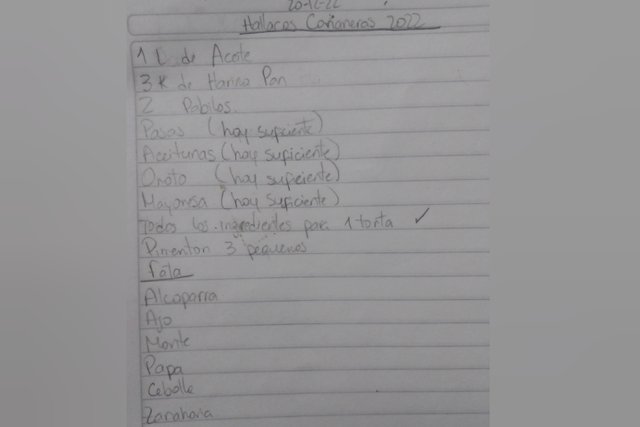 20-12-22
Hallacas Cañoneras 2022
1 L de Aceite
3 K de Harina Pan
2 Pabilos
Pasas (hay suficiente)
Aceitunas (hay suficiente)
Onoto (hay suficiente)
Mayonesa (hay suficiente)
Todos los ingredientes para 1 torta ✓
Pimenton 3 pequenos
falta
Alcaparra
Ajo
Monte
Papa
Cebolla
Zanahoria